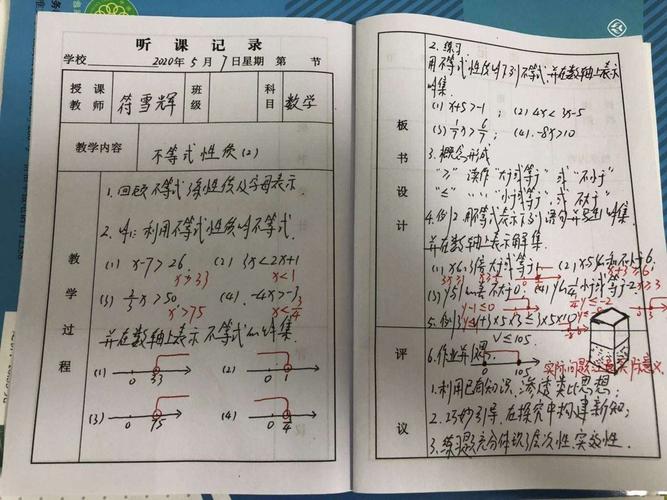 听课记录
学校 2020年5月7日星期 第 节
授课教师 符雪辉 班级 科目 数学
教学内容 不等式性质(2)
教学过程
1.回顾不等式3条性质及字母表示.
2.例1:利用不等式性质解不等式.
(1) x-7>26 (2) 3x<2x+1
x>33 x<1
(3) 2/3x>50 (4) -4x>-3
x>75 x<3/4
并在数轴上表示不等式的解集
(1) 0 33 (2) 0 1
(3) 0 75 (4) 0 3/4
板书设计
2.练习.
用不等式性质解下列不等式,并在数轴上表示
解集.
(1) x+5>-1; (2) 4x<3x-5
(3) 1/7x>6/7; (4) -8x>10
3.概念形成
"≥" 读作 "大于或等于" 或 "不小于"
"≤" "小于或等于" 或 "不大于"
4.例2.用不等式表示下列语句并写出解集
并在数轴上表示解集.
(1) x的3倍大于或等于1 (2) x与3的和不小于6.
3x≥1 x+3≥6
(3) y与1的差不大于0. (4) y的1/4小于或等于-2
y-1≤0 1/4y≤-2 x≥3
5.例3 V+3×5×3≤3×5×10
V≤105
0 105
实际问题注意实际意义
评议
6.作业
1.利用已有知识,渗透类比思想;
2.巧妙引导,在探究中构建新知;
3.练习题充分体现了层次性,实效性.